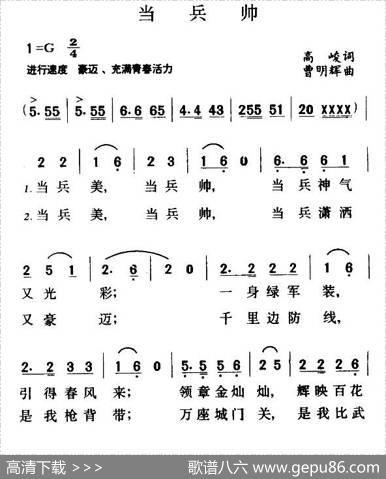 当兵帅
1=G 2/4
进行速度 豪迈、充满青春活力
高峻词
曹明辉曲
(5.55 | 5.55 | 6.6 65 | 4.4 43 | 255 51 | 20 XXXX) |
2 2 | 1 6 | 2 3 | 1 6 0 | 6. 6 6 1 |
1.当兵美, 当兵帅, 当兵神气
2.当兵美, 当兵帅, 当兵潇洒
2 5 1 | 2. 6 | 2 0 | 2. 2 2 2 | 1 6 |
又光彩; 一身绿军装,
又豪迈; 千里边防线,
2. 2 3 3 | 1 6 0 | 5. 5 5 6 | 1 6 | 2 2 2 6 |
引得春风来; 领章金灿灿, 辉映百花
是我枪背带; 万座城门关, 是我比武
高清下载 >>>
歌谱八六 www.gepu86.com